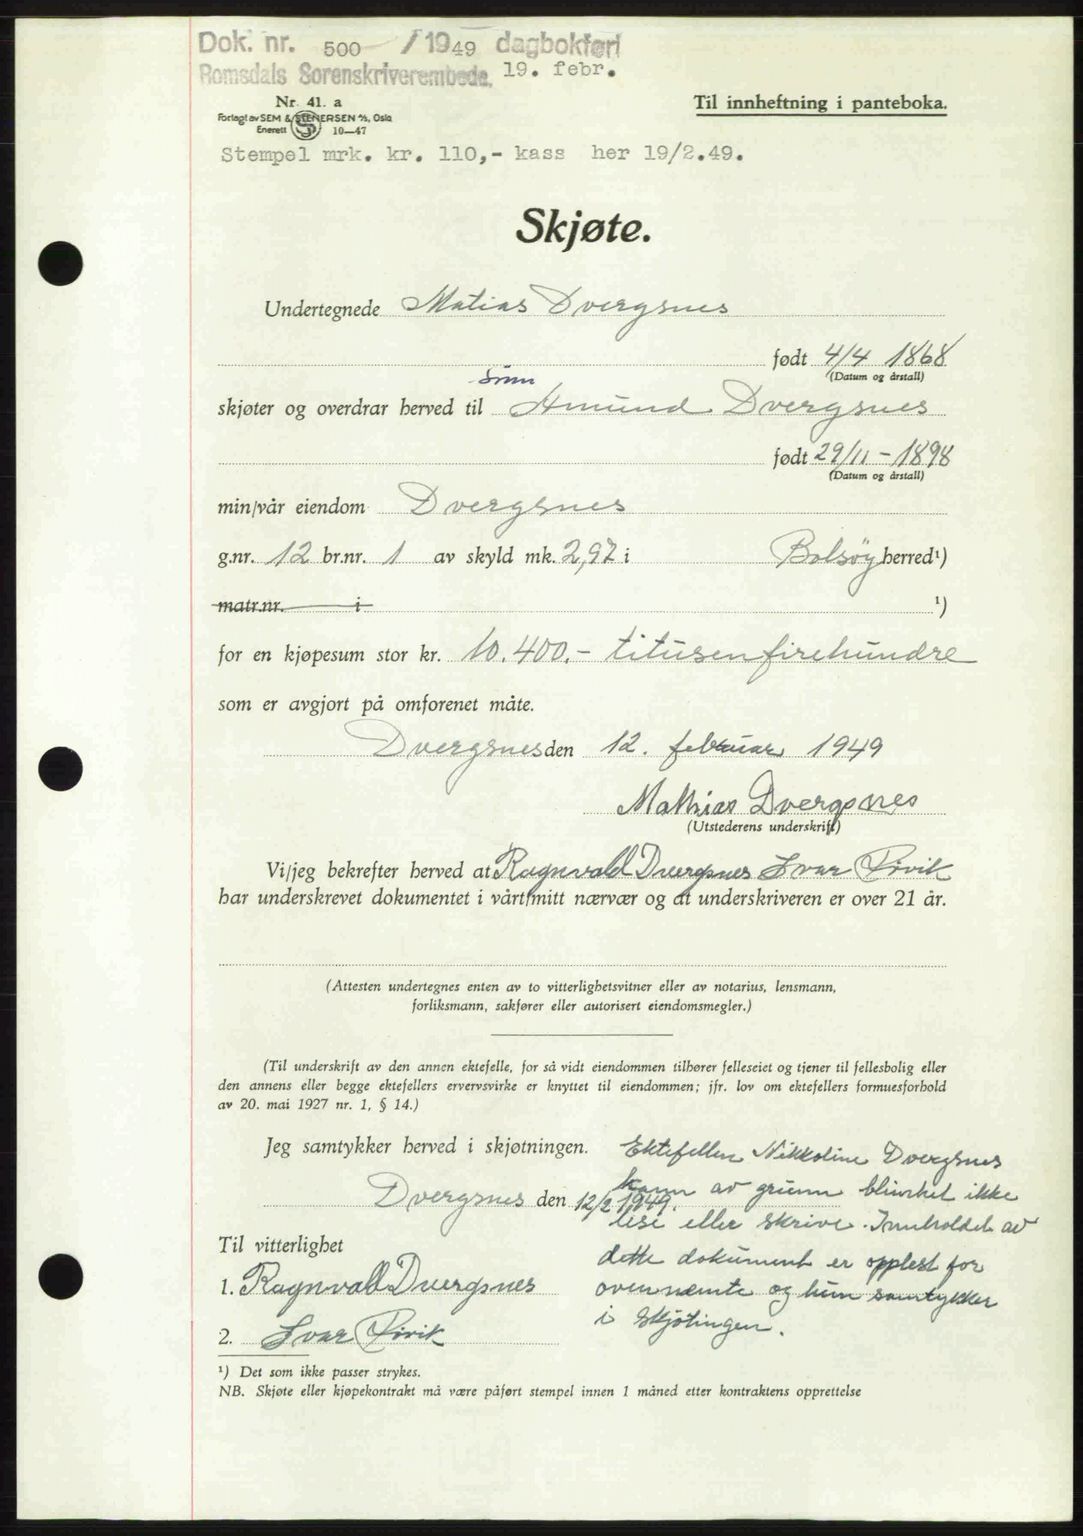 Dok. nr. 500 / 1949 dagbokført
Romsdals Sorenskriverembede. 19. febr.
Nr. 41. a
Til innheftning i panteboka.
Forlagt av SEM & STENERSEN A/S, Oslo
Enerett 10—47
Stempel mrk. kr. 110,- kass her 19/2.49.
Skjøte.
Undertegnede Matias Dvergsnes
født 4/4 1868
(Datum og årstall)
sønn
skjøter og overdrar herved til Amund Dvergsnes
født 29/11 - 1898
(Datum og årstall)
min/vår eiendom Dvergsnes
g.nr. 12 br.nr. 1 av skyld mk. 2,97 i Bolsøy herred¹)
matr.nr. i ¹)
for en kjøpesum stor kr. 10.400.- titusenfirehundre
som er avgjort på omforenet måte.
Dvergsnes den 12. februar 1949
Mathias Dvergsnes
(Utstederens underskrift)
Vi/jeg bekrefter herved at Ragnvald Dvergsnes Ivar
har underskrevet dokumentet i vårt/mitt nærvær og at underskriveren er over 21 år.
(Attesten undertegnes enten av to vitterlighetsvitner eller av notarius, lensmann,
forliksmann, sakfører eller autorisert eiendomsmegler.)
(Til underskrift av den annen ektefelle, for så vidt eiendommen tilhører felleseiet og tjener til fellesbolig eller
den annens eller begge ektefellers ervervsvirke er knyttet til eiendommen; jfr. lov om ektefellers formuesforhold
av 20. mai 1927 nr. 1, § 14.)
Jeg samtykker herved i skjøtningen.
Dvergsnes den 12/2 1949.
Ektefellen Nikkoline Dvergsnes
kann av grunn blindhet ikke
lese eller skrive. Innholdet av
dette dokument er opplest for
ovennemte og hun samtykker
i Skjøtingen.
Til vitterlighet
1. Ragnvald Dvergsnes
2. Ivar
¹) Det som ikke passer strykes.
NB. Skjøte eller kjøpekontrakt må være påført stempel innen 1 måned etter kontraktens opprettelse